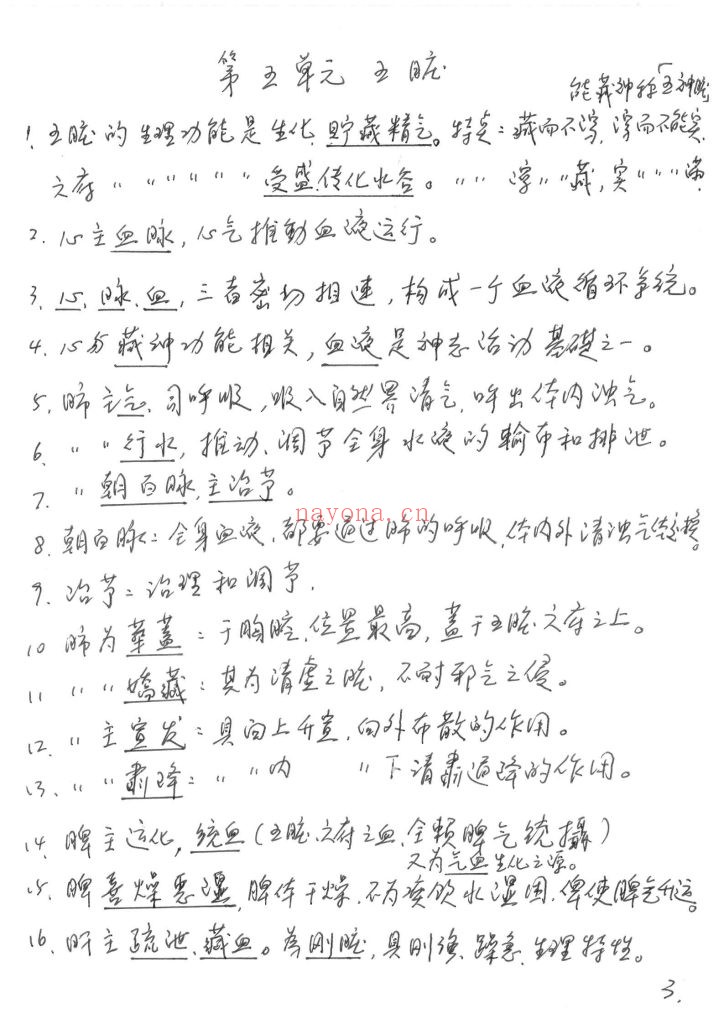 第五单元 五脏
能藏神称「五神脏
1. 五脏的生理功能是生化、贮藏精气。特点：藏而不泻，满而不能实
六府 〃 〃 〃 〃 〃 〃 受盛、传化水谷。〃 〃 泻 〃 〃 藏，实 〃 〃 〃 满
2. 心主血脉，心气推動血液运行。
3. 心、脉、血，三者密切相连，构成一个血液循环系统。
4. 心与藏神功能相关，血液是神志活动基礎之一。
5. 肺主气、司呼吸，吸入自然界清气，呼出体内浊气。
6. 〃 〃 行水，推动、调节全身水液的输布和排泄。
7. 〃 朝百脉，主治节。
nayona.cn
8. 朝百脉：全身血液，都要通过肺的呼吸，体内外清浊气体交换。
9. 治节：治理和调节.
10 肺为華蓋：于胸腔，位置最高，蓋于五脏六府之上。
11 〃 〃 嬌藏：其为清虚之脏，不耐邪气之侵。
12. 〃 主宣发：具向上升宣，向外布散的作用。
13. 〃 〃 肅降：〃 〃 内 〃 下清肅通降的作用。
14. 脾主运化，统血（五脏六府之血，全賴脾气统攝）
又为气血生化之源。
15. 脾喜燥恶湿，脾体干燥，不为痰飲水湿困，俾使脾气升运。
16. 肝主疏泄、藏血。為刚脏，具刚强、躁急生理特性。
3.